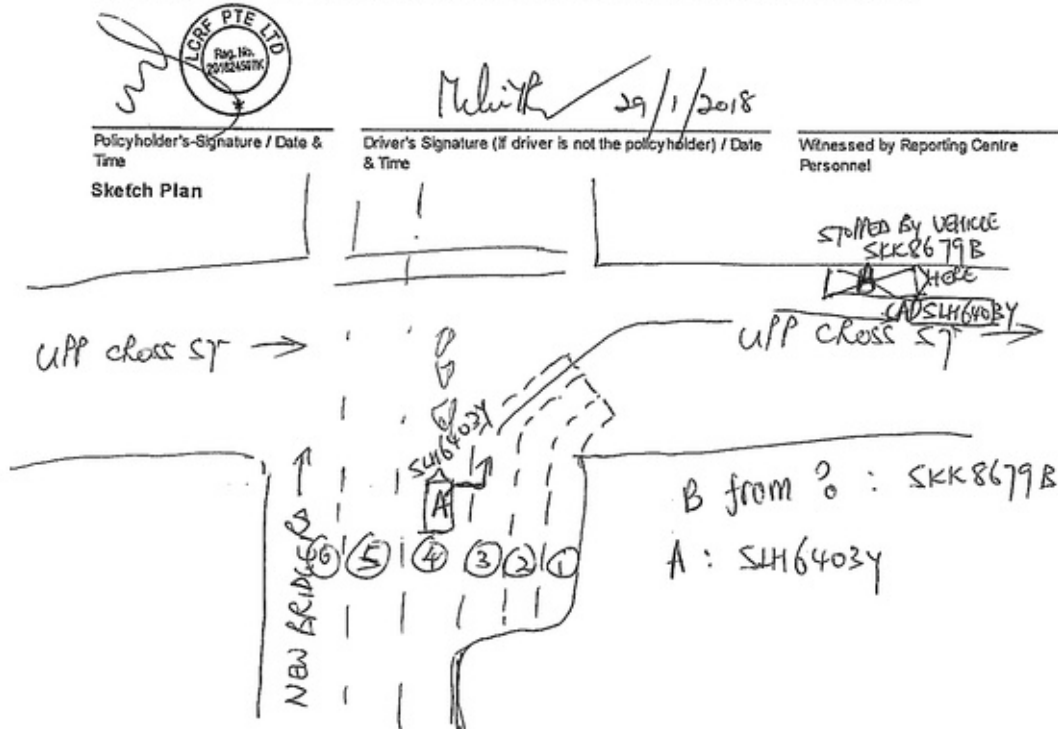 LCRF PTE LTD
Reg. No.
29/1/2018
Policyholder's Signature / Date & Time
Driver's Signature (If driver is not the policyholder) / Date & Time
Witnessed by Reporting Centre Personnel
Sketch Plan
STOPPED BY VEHICLE
SKK8679B
B
HERE
SLH6403Y
UPP CROSS ST →
UPP CROSS ST
SLH6403Y
A
B from ? : SKK8679B
A : SLH6403Y
6 5 4 3 2 1
NEW BRIDGE RD